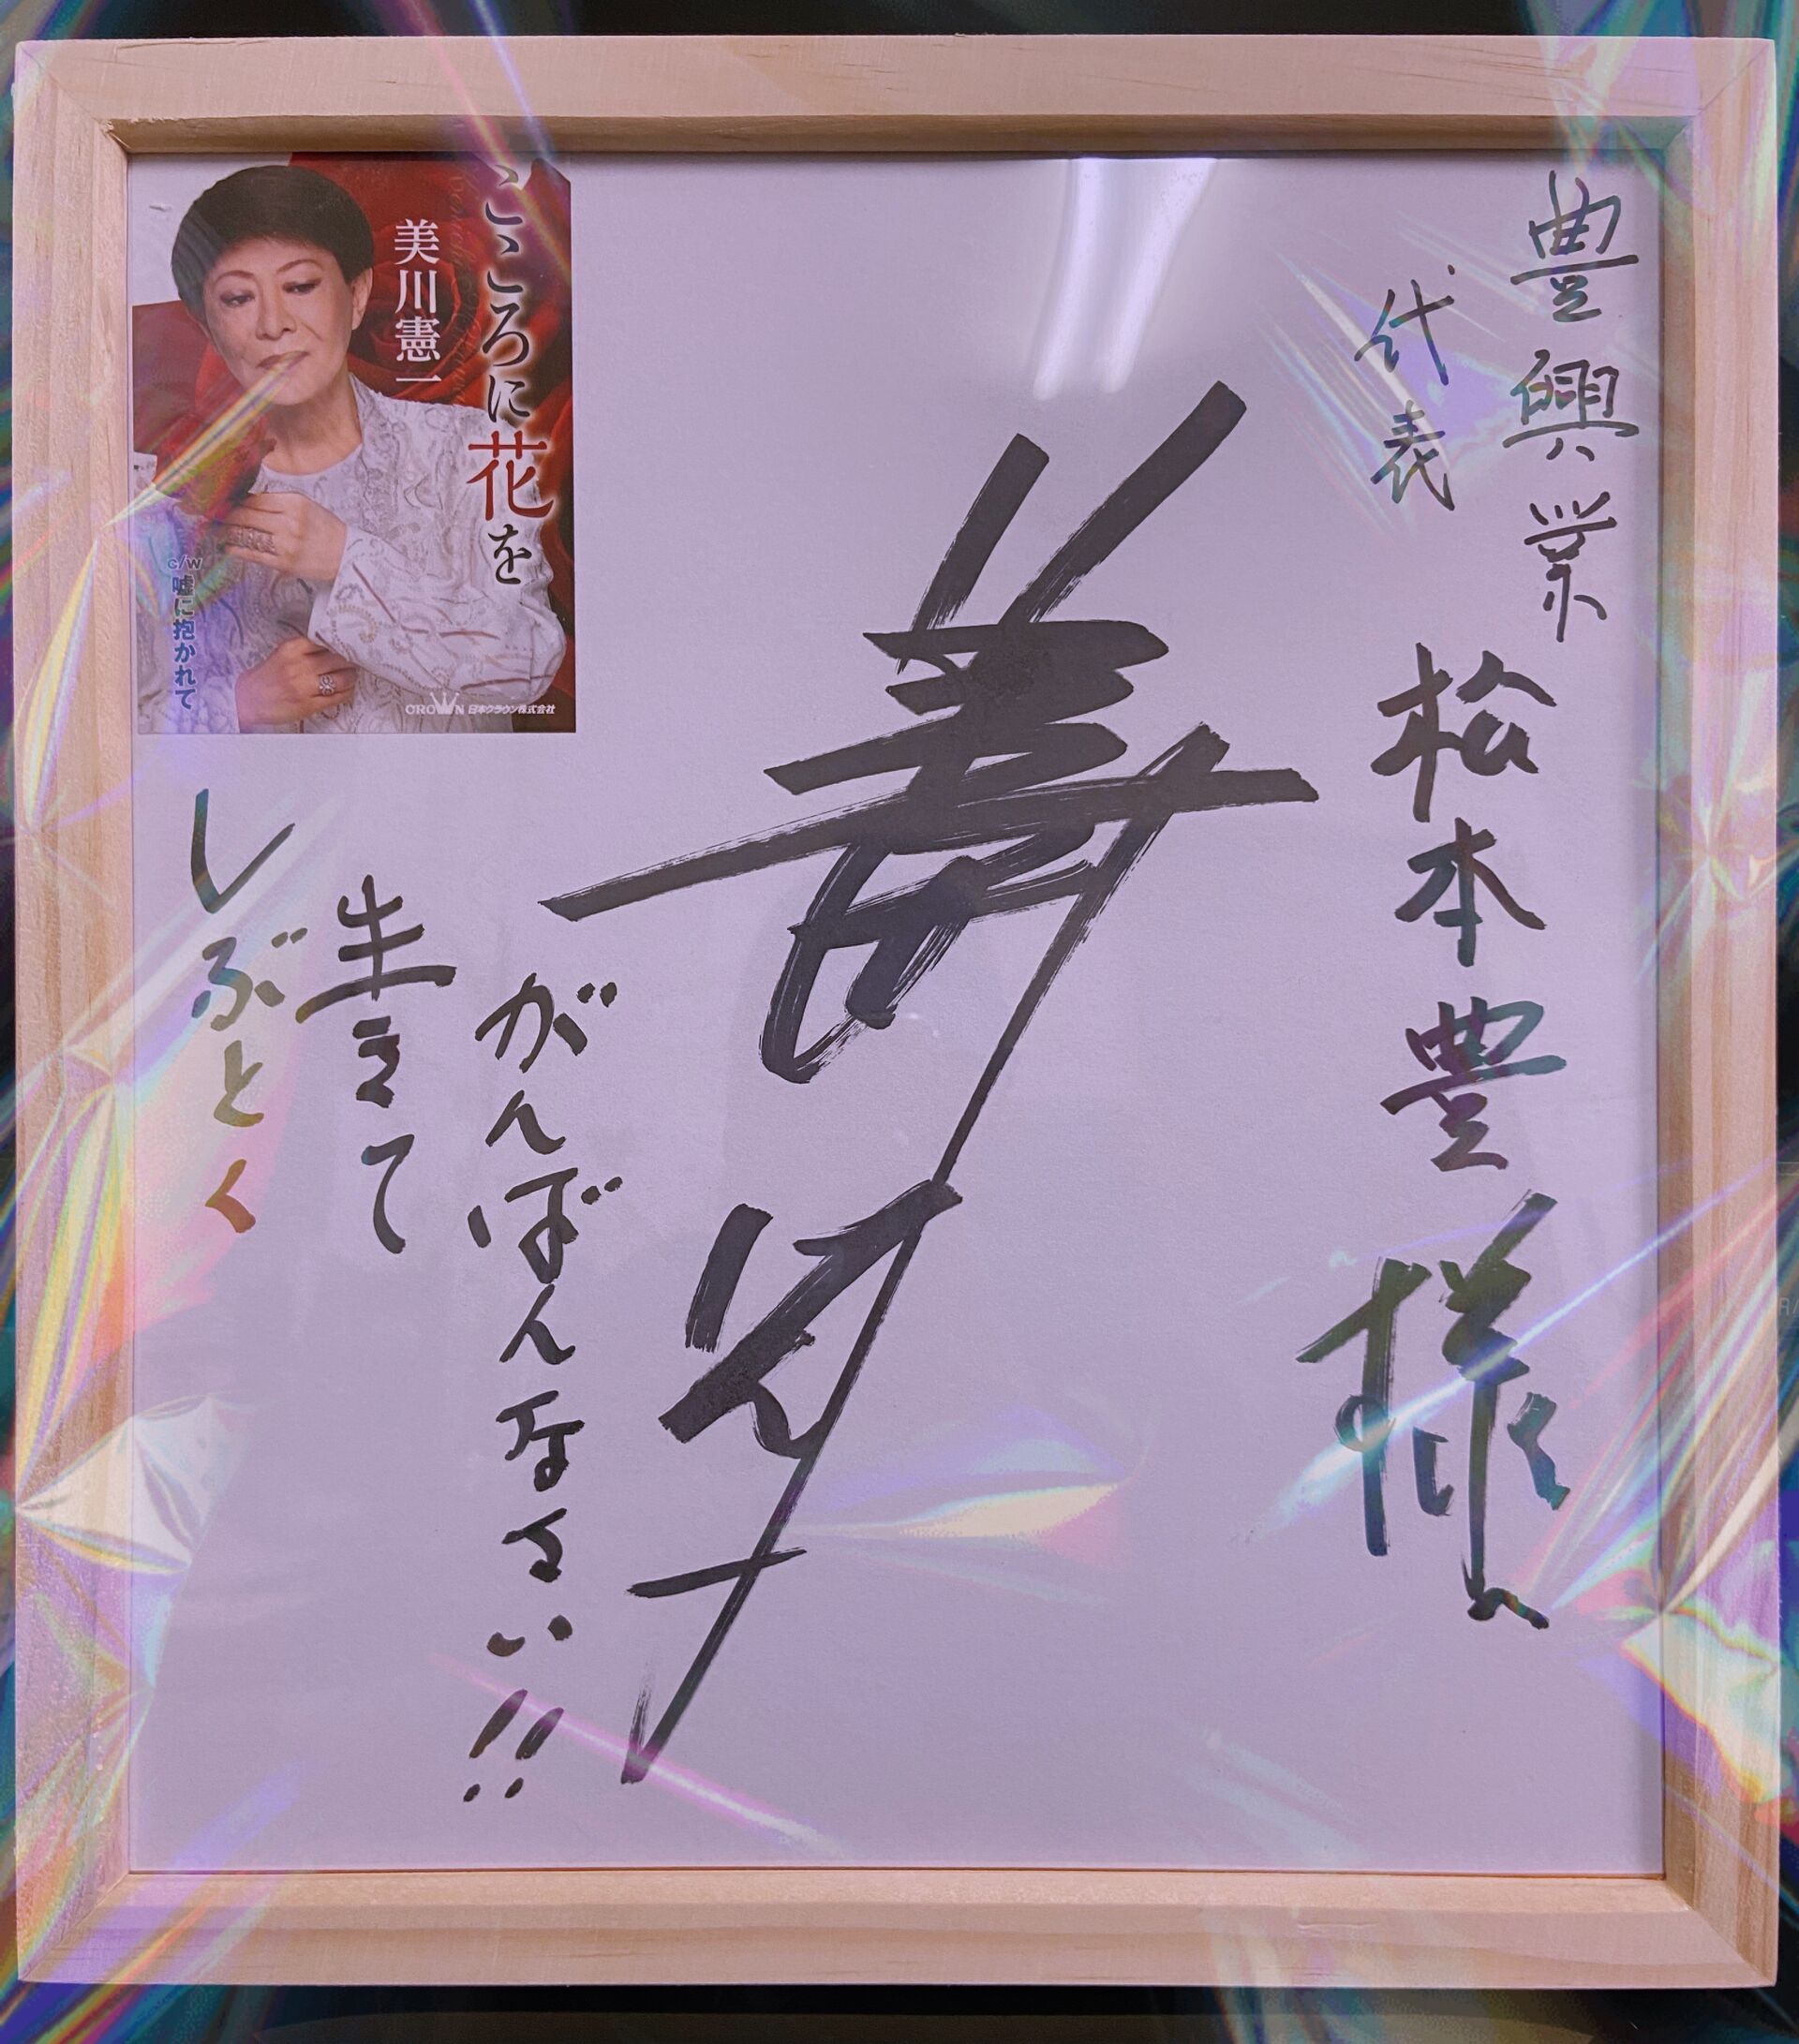 豊興業
代表
松本豊様
こころに花を
美川憲一
c/w 嘘に抱かれて
CROWN 日本クラウン株式会社
しぶとく
生きて
がんばんなさい!!